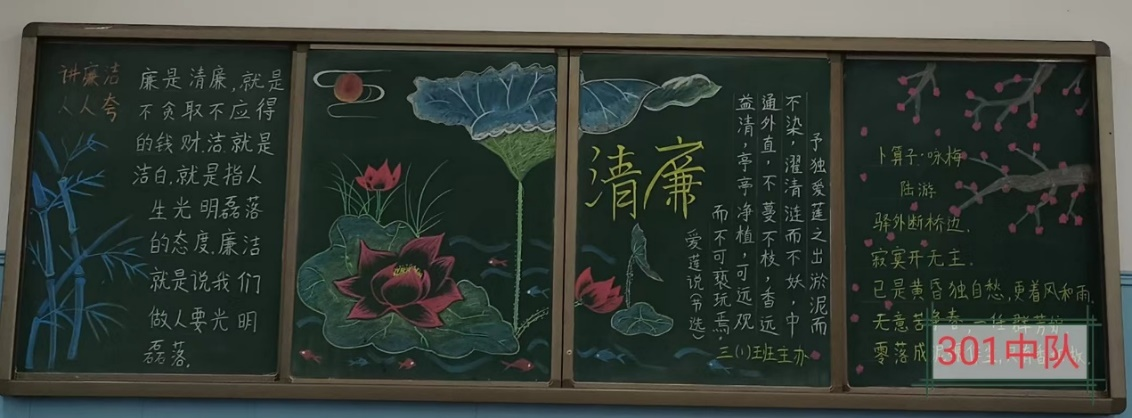 讲廉洁
人人夸
廉是清廉,就是
不贪取不应得
的钱财.洁就是
洁白.就是指人
生光明磊落
的态度.廉洁
就是说我们
做人要光明
磊落.
清廉
予独爱莲之出淤泥而
不染,濯清涟而不妖,中
通外直,不蔓不枝,香远
益清,亭亭净植,可远观
而不可亵玩焉.
爱莲说(节选)
三(1)班主办
卜算子·咏梅
陆游
驿外断桥边.
寂寞开无主.
已是黄昏独自愁,更着风和雨.
无意苦争春,一任群芳
零落成
301中队